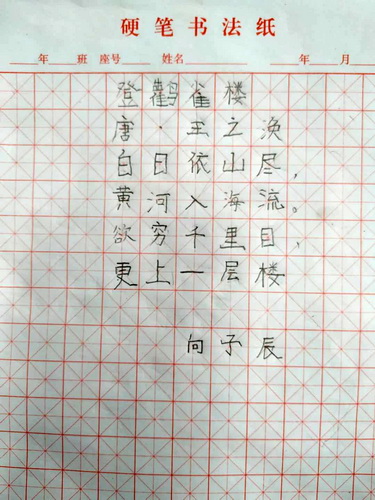 硬笔书法纸
年 班 座号 姓名 年 月
登鹳雀楼
唐·王之涣
白日依山尽,
黄河入海流。
欲穷千里目,
更上一层楼
向子辰